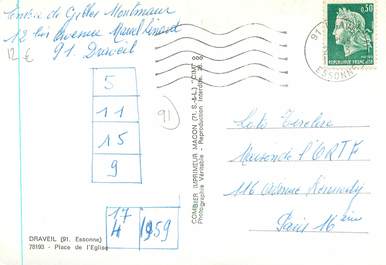 Entrée de Gilles Montmaur
12 bis Avenue Marcel
91 Draveil
12 €
5
11
15
9
17
4 1959
91
DRAVEIL (91. Essonne)
78193 - Place de l'Eglise
COMBIER IMPRIMEUR MACON (71. S.-&-L.) "CIM"
Photographie Véritable - Reproduction Interdite
0,30
REPUBLIQUE FRANCAISE
91-
ESSONNE
Loto Tirelire
Maison de l'ORTF
116 Avenue Kennedy
Paris 16 ème